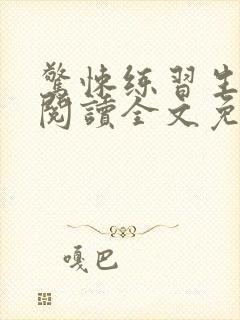 驚悚練習生
閱讀全文免
嘎巴